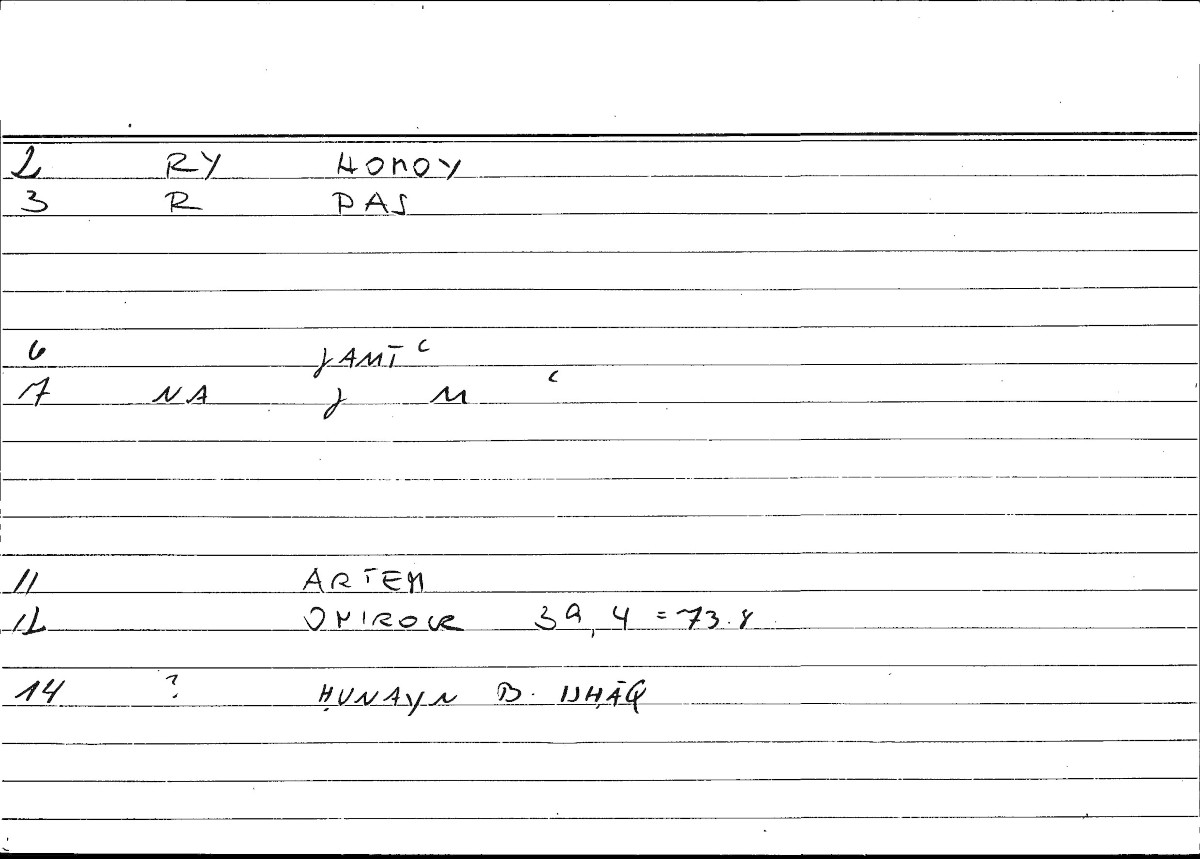 2 RY HOMOY
3 R DAS
6 JAMĪʿ
7 NA J M ʿ
11 ARTEM
12 39,4 = 73.8
14 ? ḤUNAYN B. ISḤĀQ